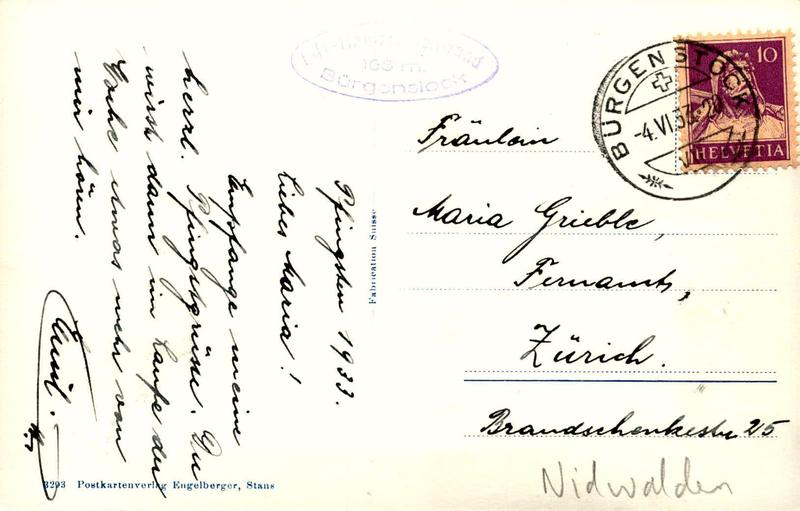 Pfingsten 1933.
Liebes Maria!
Empfange meine
herzl. Pfingstgrüsse. Du
wirst dann im Laufe der
Woche etwas mehr von
mir hören.
Emil.
165 m.
Bürgenstock
BÜRGENSTOCK
-4.VI.33.-20
10
HELVETIA
Fräulein
Maria Grieble,
Fernamt,
Zürich.
Brandschenkestr 25
Nidwalden
Fabrication Suisse
3293 Postkartenverlag Engelberger, Stans